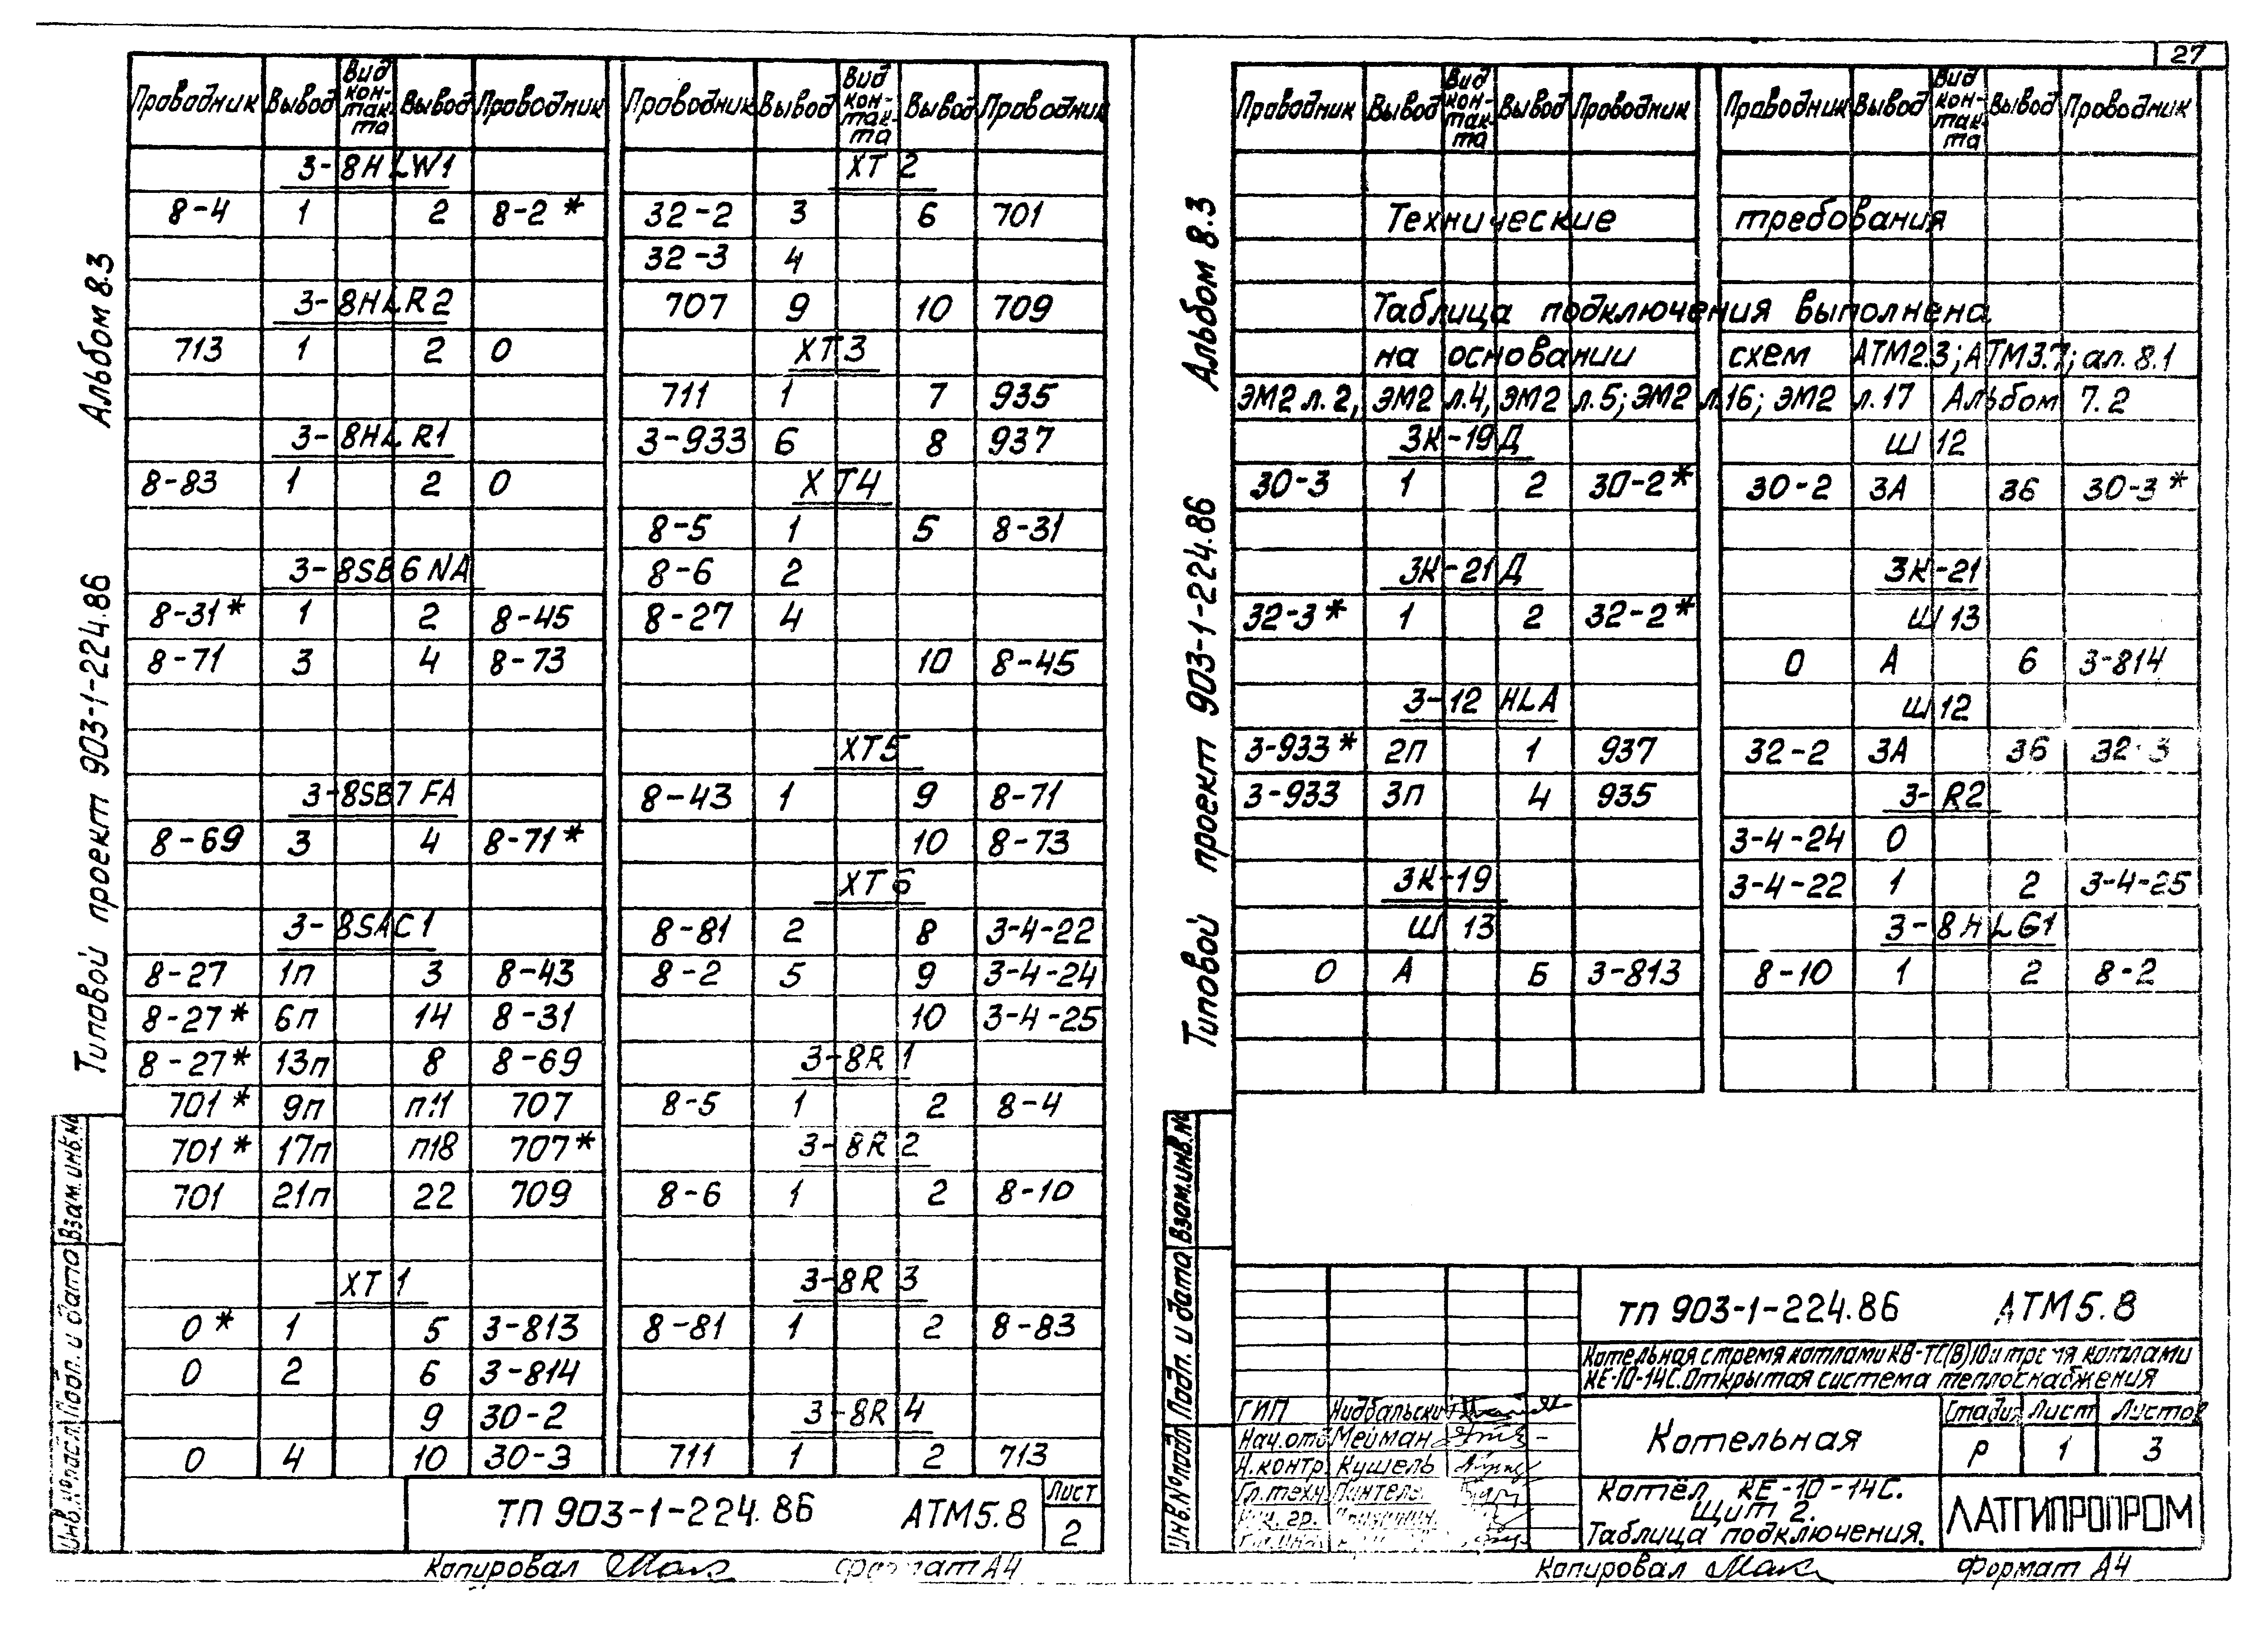 27
Альбом 8.3
Типовой проект 903-1-224.86
Взам.инв.№
Подп. и дата
Инв.№подл.
Проводник Вывод Вид контакта Вывод Проводник
3-8HLW1
8-4 1 2 8-2*
3-8HLR2
713 1 2 0
3-8HLR1
8-83 1 2 0
3-8SB6NA
8-31* 1 2 8-45
8-71 3 4 8-73
3-8SB7FA
8-69 3 4 8-71*
3-8SAC1
8-27 1п 3 8-43
8-27* 6п 14 8-31
8-27* 13п 8 8-69
701* 9п п11 707
701* 17п п18 707*
701 21п 22 709
XT1
0* 1 5 3-813
0 2 6 3-814
9 30-2
0 4 10 30-3
Проводник Вывод Вид контакта Вывод Проводник
XT2
32-2 3 6 701
32-3 4
707 9 10 709
XT3
711 1 7 935
3-933 6 8 937
XT4
8-5 1 5 8-31
8-6 2
8-27 4
10 8-45
XT5
8-43 1 9 8-71
10 8-73
XT6
8-81 2 8 3-4-22
8-2 5 9 3-4-24
10 3-4-25
3-8R1
8-5 1 2 8-4
3-8R2
8-6 1 2 8-10
3-8R3
8-81 1 2 8-83
3-8R4
711 1 2 713
ТП 903-1-224.86 АТМ5.8
Лист
2
Копировал
Формат А4
Альбом 8.3
Типовой проект 903-1-224.86
Взам.инв.№
Подп. и дата
Инв.№подл.
Проводник Вывод Вид контакта Вывод Проводник
Проводник Вывод Вид контакта Вывод Проводник
Технические требования
Таблица подключения выполнена
на основании схем АТМ2.3; АТМ3.7; ал. 8.1
ЭМ2 л.2, ЭМ2 л.4, ЭМ2 л.5; ЭМ2 л.16; ЭМ2 л.17 Альбом 7.2
3К-19Д
30-3 1 2 30-2*
3К-21Д
32-3* 1 2 32-2*
3-12HLA
3-933* 2п 1 937
3-933 3п 4 935
3К-19
Ш13
0 А Б 3-813
Ш12
30-2 3А 3б 30-3*
3К-21
Ш13
0 А б 3-814
Ш12
32-2 3А 3б 32-3
3-R2
3-4-24 0
3-4-22 1 2 3-4-25
3-8HLG1
8-10 1 2 8-2
ТП 903-1-224.86 АТМ5.8
Котельная с тремя котлами КВ-ТС(В)10 и тремя котлами
КЕ-10-14С. Открытая система теплоснабжения
ГИП Нидбальски
Нач.отд Мейман
Н.контр Кушель
Гл.техн
Котельная
Стадия Лист Листов
Р 1 3
Котёл КЕ-10-14С.
Щит 2.
Таблица подключения.
ЛАТГИПРОПРОМ
Копировал
Формат А4